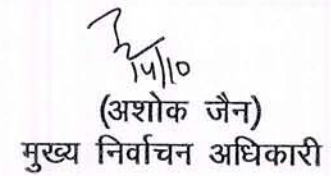 14/10
(अशोक जैन)
मुख्य निर्वाचन अधिकारी